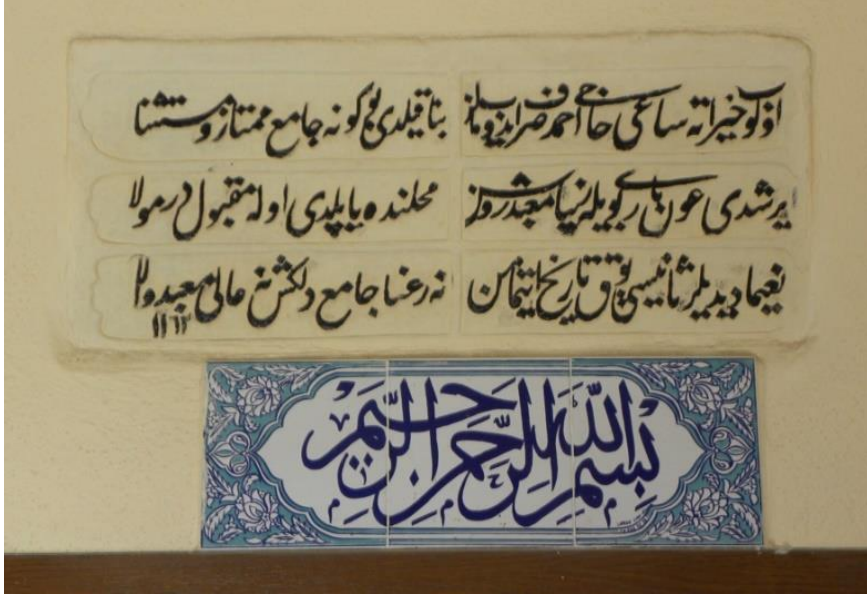 اولوب خيراته ساعی حاجی احمد صرف ايدوب مالن بنا قيلدی بو كونه جامع ممتاز و مستثنا
يرشدی عون باری بويله بر زيبا معبد محلنده ياپلدی اوله مقبول در مولا
نعيما ديديلر ثانيسی يوق تاريخ اتمامن نه رعنا جامع دلكش نه عالی معبد والا
١١٦٢
بسم الله الرحمن الرحيم